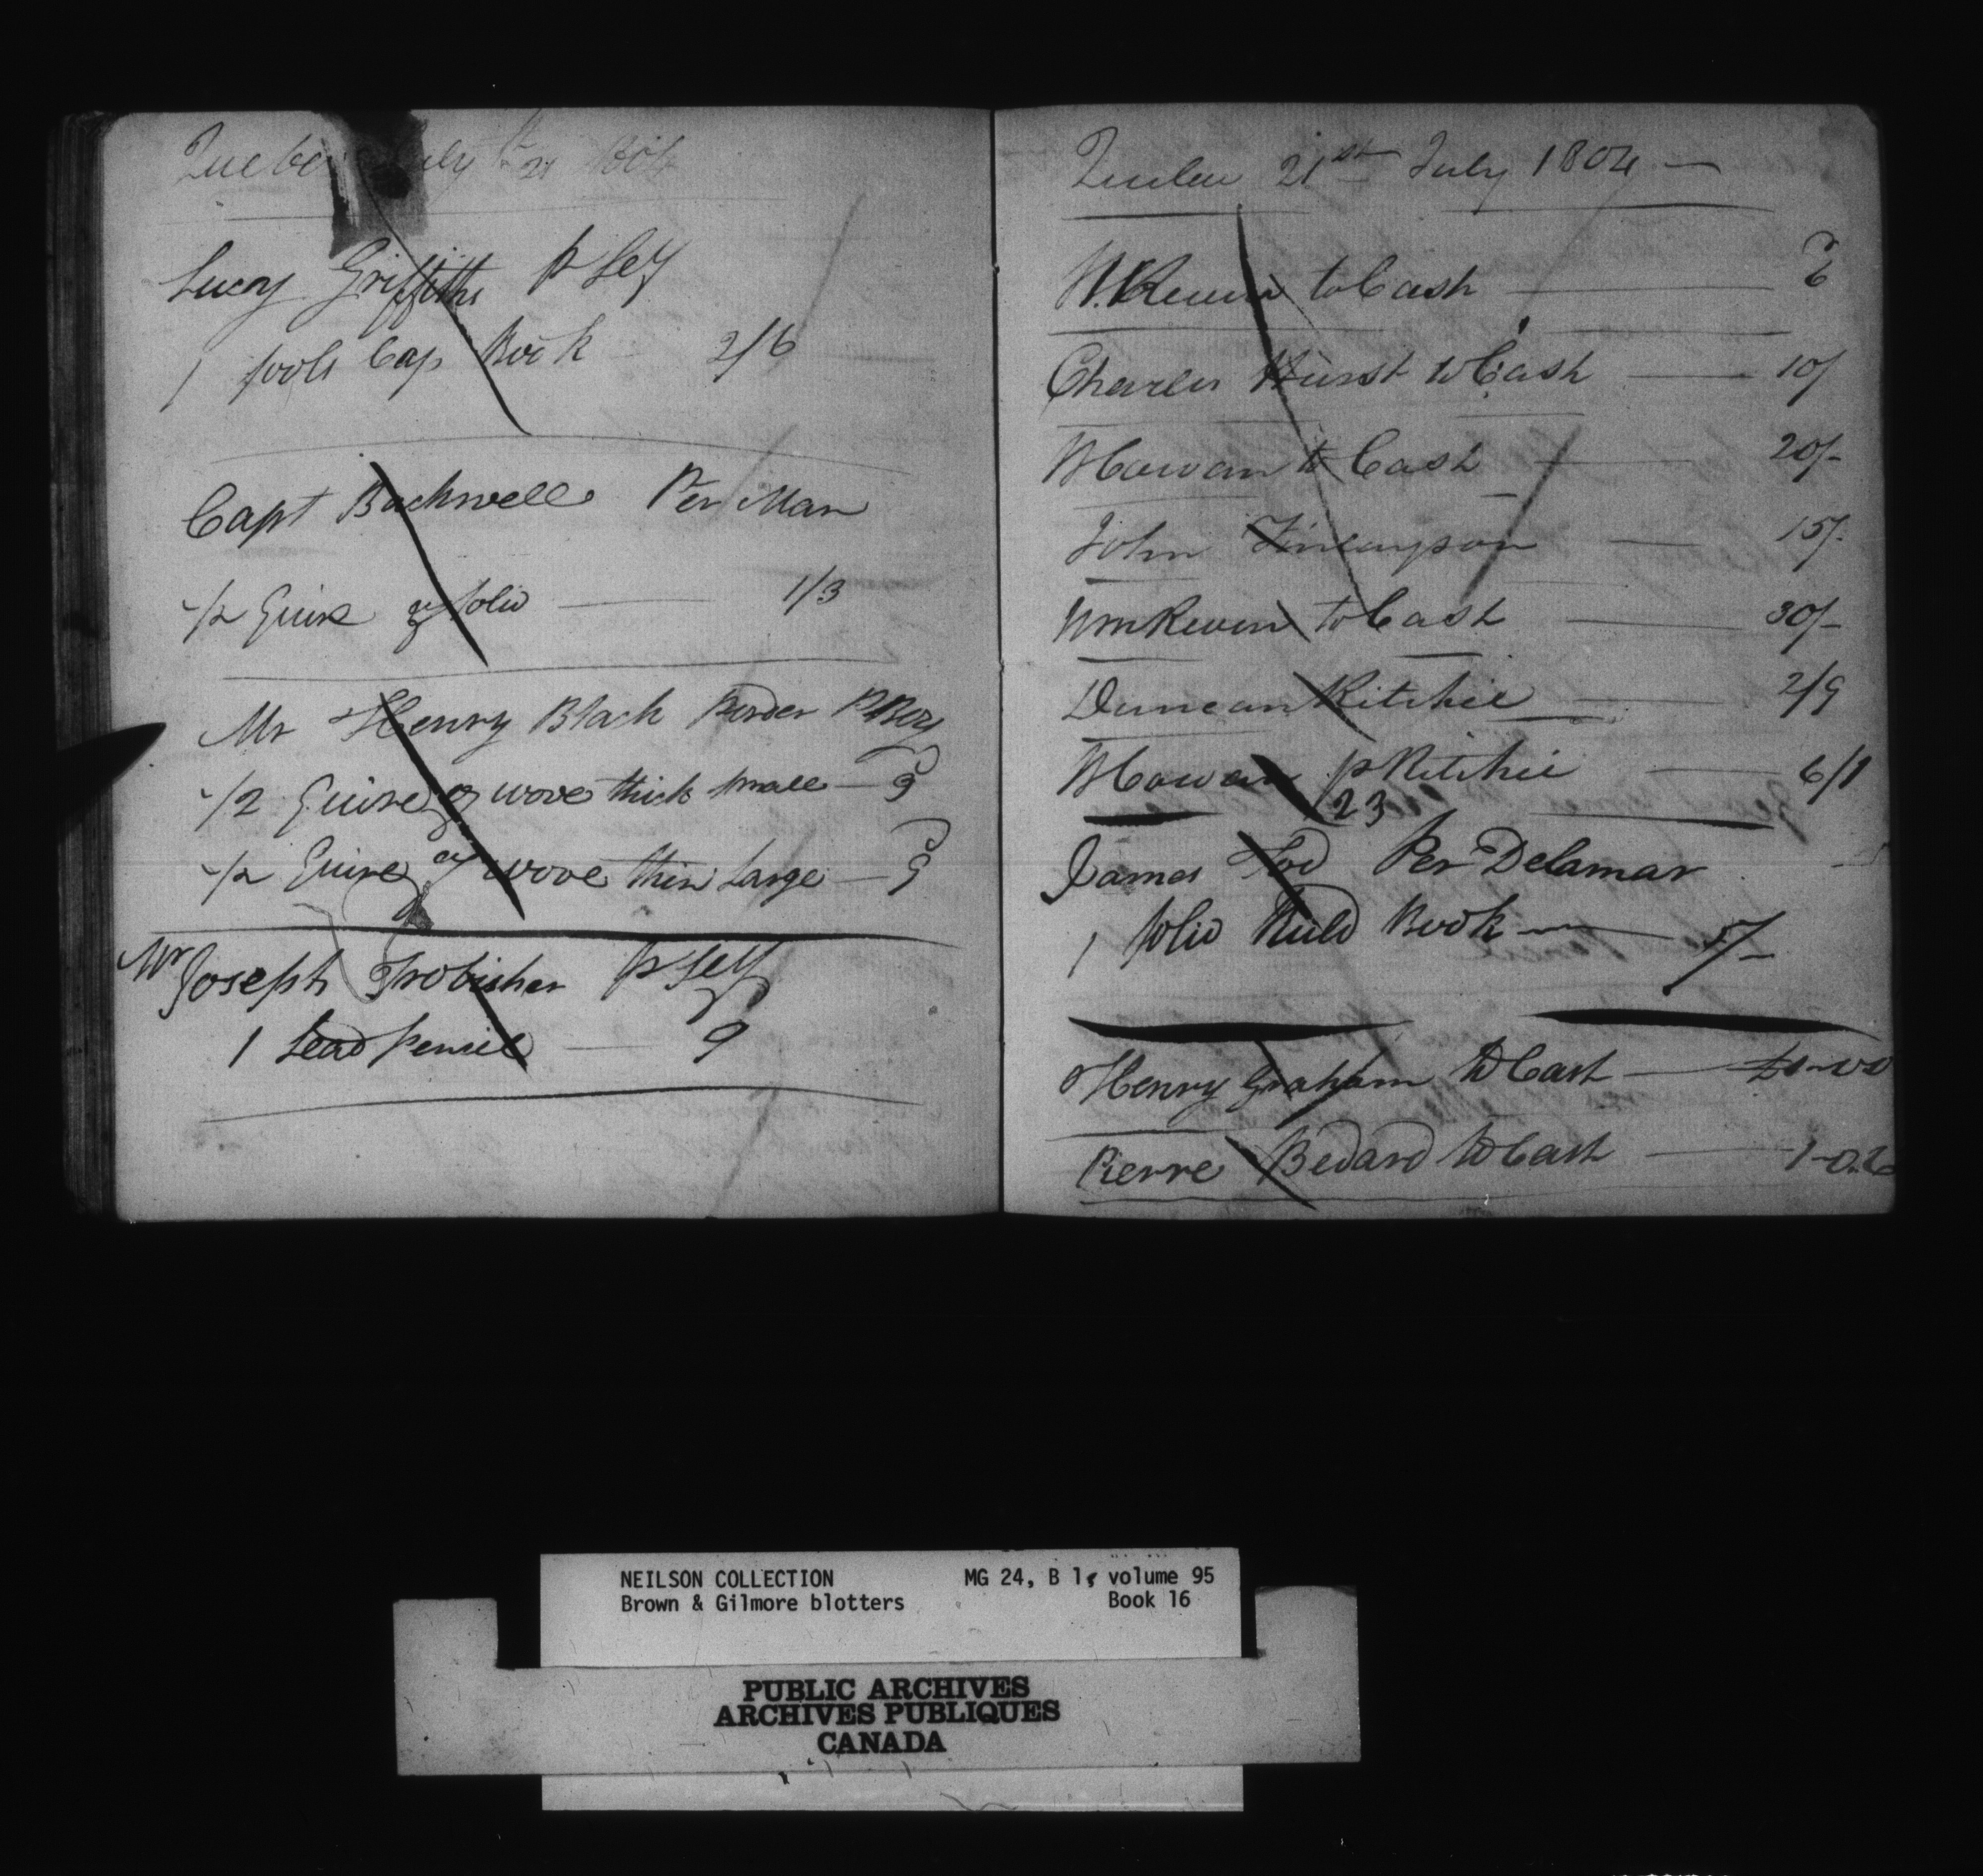 Quebec July 21 1804
Lucy Griffiths P Self
1 fools Cap Book 2/6
Capt Backwell Per Man
1/2 Quire of folio 1/3
Mr Henry Black Border P Boy
1/2 Quire of wove thick small 9
1/2 Quire of wove thin Large 9
Mr Joseph Frobisher P Self
1 Lead Pencil 9
Quebec 21st July 1804
W. Reuin to Cash 6
Charles Hurst to Cash 10/
WCowan to Cash 20/-
John Finlayson 15/-
Wm Reuin to Cash 30/-
Duncan Ritchie 2/9
WCowan p Ritchie 6/1
23
James Tod Per Delamar
1 folio Ruld Book 5/-
Henry Graham to Cash
Pierre Bedard to Cash
NEILSON COLLECTION MG 24, B 1, volume 95
Brown & Gilmore blotters Book 16
PUBLIC ARCHIVES
ARCHIVES PUBLIQUES
CANADA